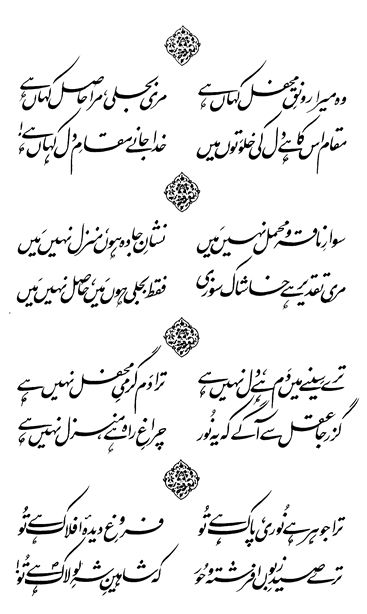 وہ میرا رونقِ محفل کہاں ہے مری بجلی، مرا حاصل کہاں ہے
مقام اس کا ہے دل کی خلوتوں میں خدا جانے مقامِ دل کہاں ہے!
سوارِ ناقہ و محمل نہیں مَیں نشانِ جادہ ہوں، منزل نہیں مَیں
مری تقدیر ہے خاشاک سوزی فقط بجلی ہوں مَیں، حاصل نہیں مَیں
ترے سینے میں دَم ہے، دل نہیں ہے ترا دَم گرمیِ محفل نہیں ہے
گزر جا عقل سے آگے کہ یہ نُور چراغِ راہ ہے، منزل نہیں ہے
ترا جوہر ہے نُوری، پاک ہے تُو فروغِ دیدۂ افلاک ہے تُو
ترے صیدِ زبُوں افرشتہ و حُور کہ شاہینِ شہِ لولاکؐ ہے تُو!